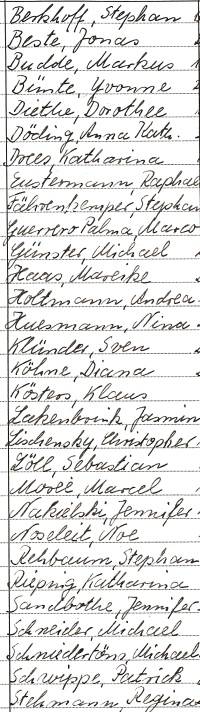 Berkhoff, Stephan
Beste, Jonas
Budde, Markus
Bünte, Yvonne
Diethe, Dorothee
Döding, Anna Kath.
Droes, Katharina
Eustermann, Raphael
Fährenkemper, Stephan
Guerrero Palma, Marco
Günster, Michael
Haas, Mareike
Holtmann, Andrea
Huesmann, Nina
Klünder, Sven
Köhne, Diana
Kösters, Klaus
Lakenbrink, Jasmin
Lischensky, Christopher
Löll, Sebastian
Moree, Marcel
Nakielski, Jennifer
Noseleit, Noe
Rehbaum, Stephan
Riepnig Katharina
Sandbothe, Jennifer
Schneider, Michael
Schniedertöns, Michael
Schwippe, Patrick
Stehmann, Regina